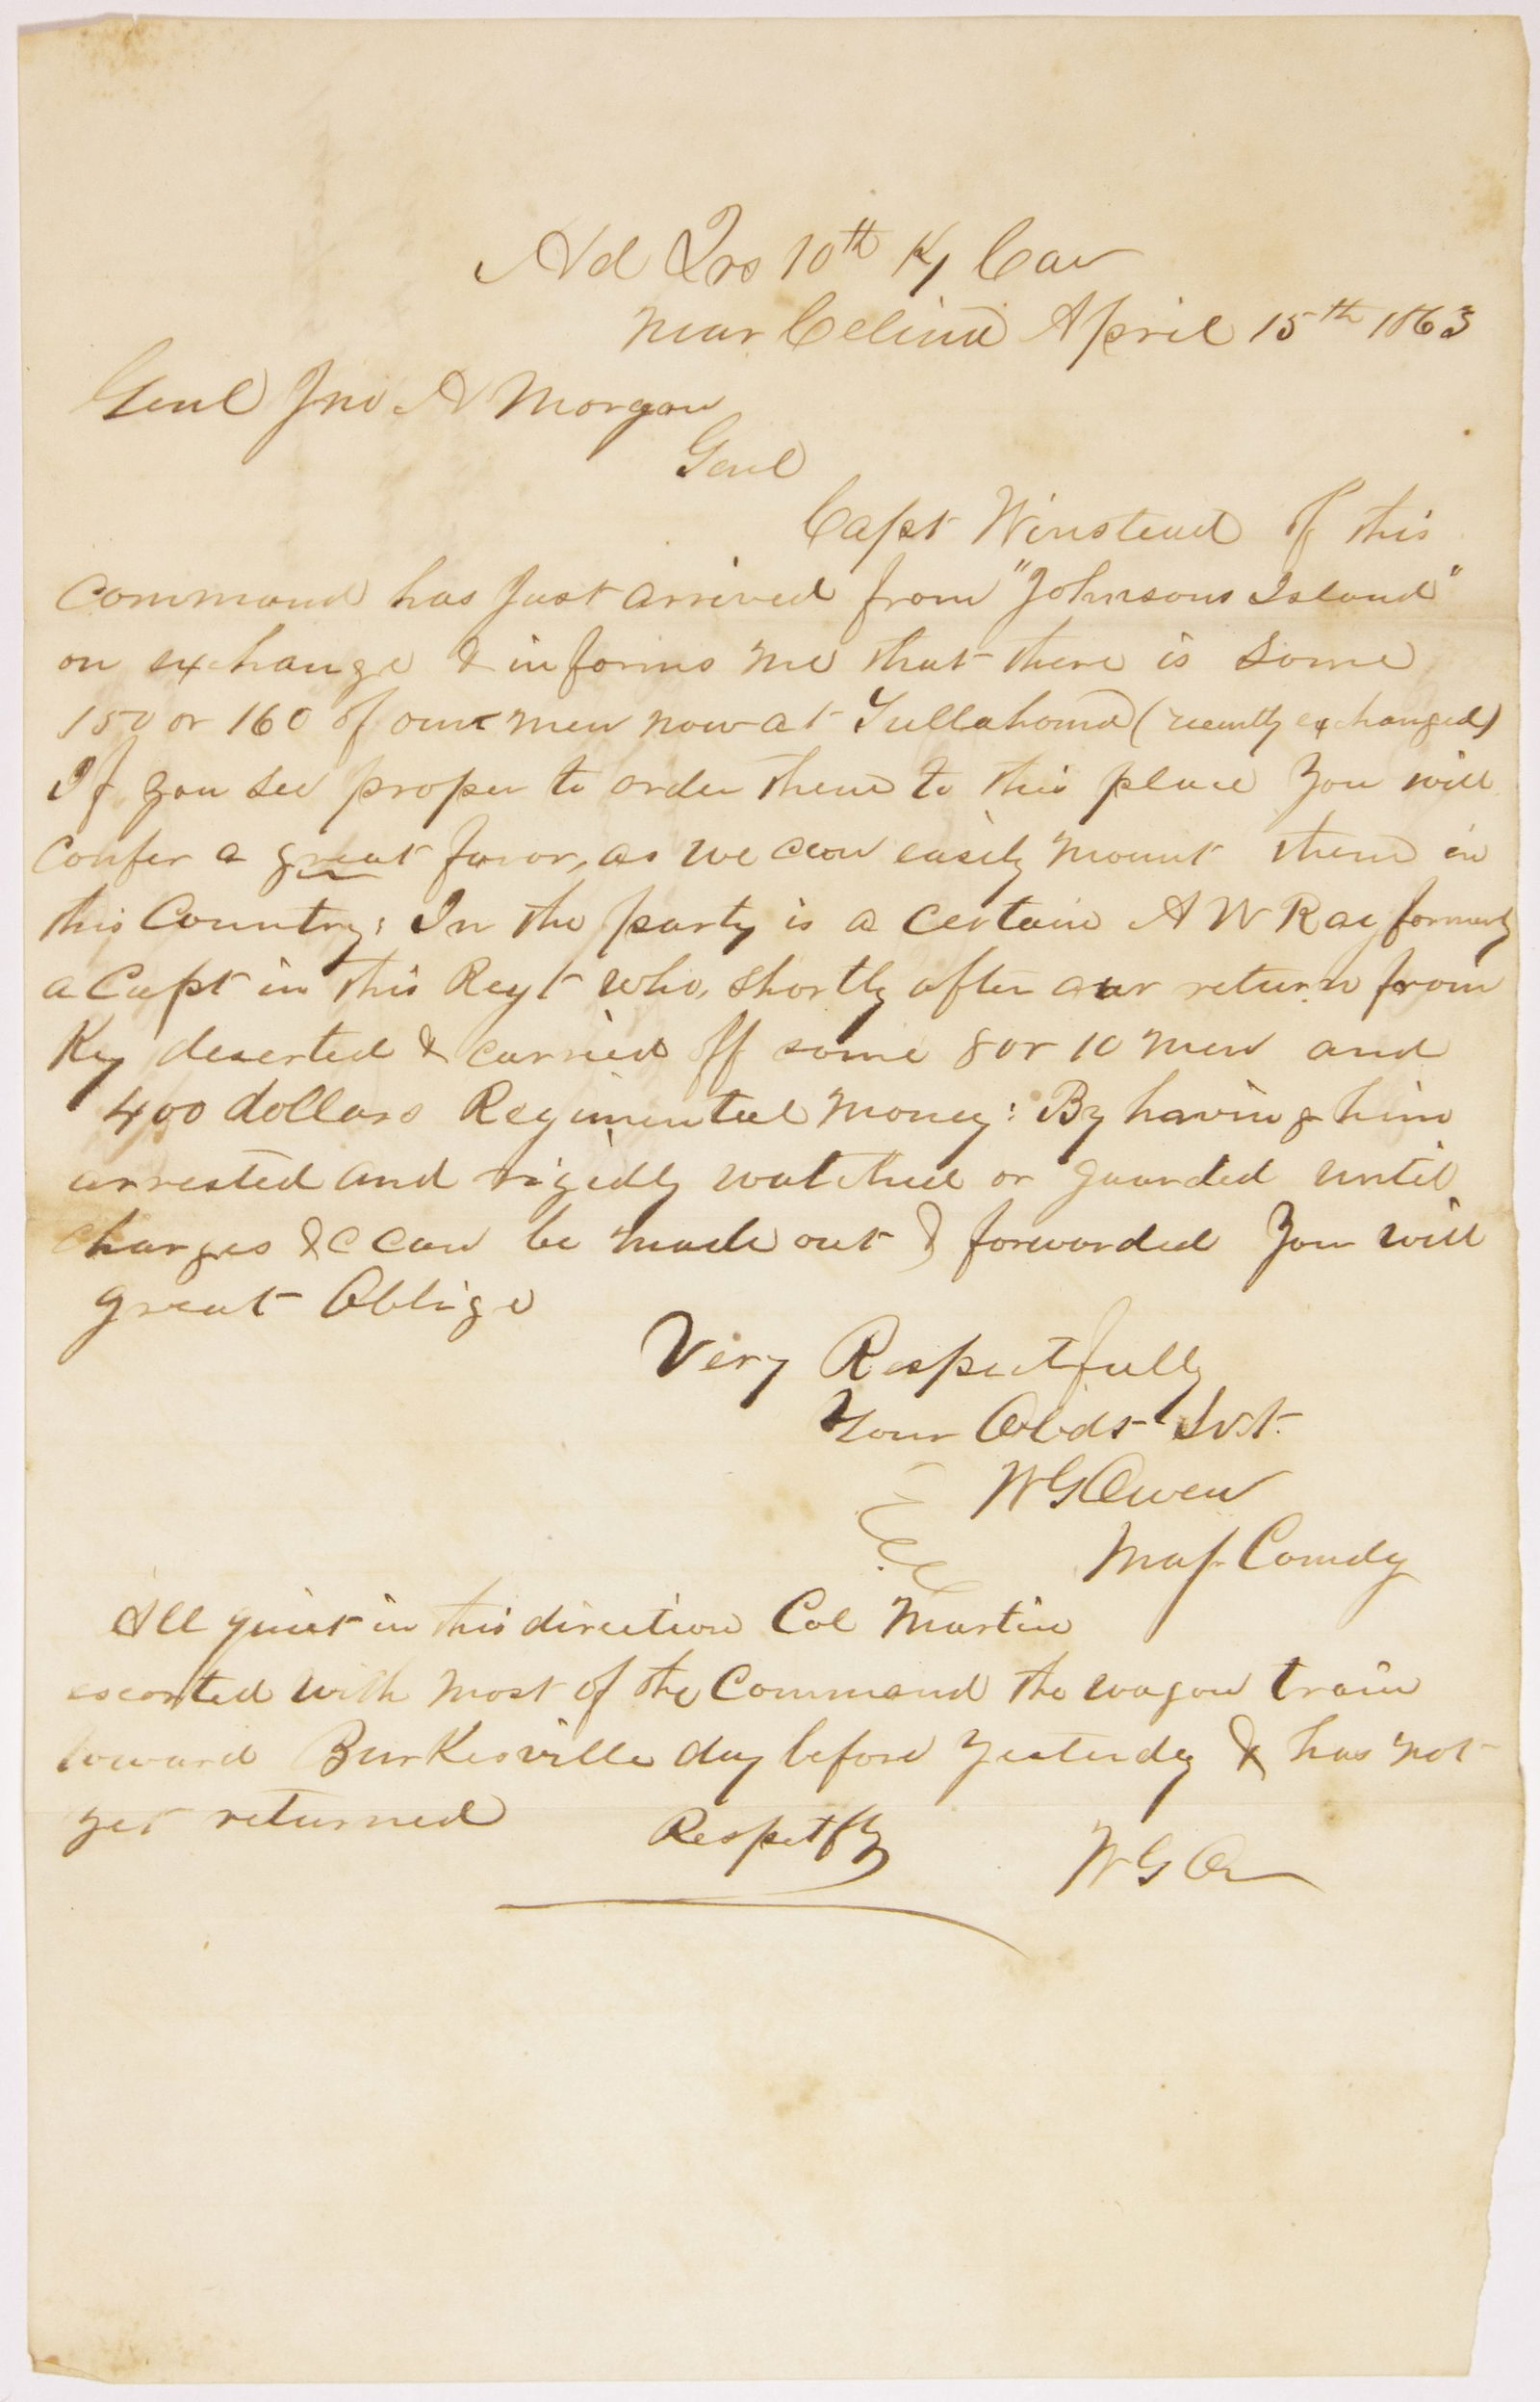 Hd Qrs 10th Ky Cav
Near Celina April 15th 1863
Genl Jno H Morgan
Genl
Capt Winstead of this
command has just arrived from "Johnsons Island"
on exchange & informs me that there is some
150 or 160 of our men now at Tullahoma (recently exchanged)
If you see proper to order them to this place you will
confer a great favor, as we can easily mount them in
this Country: In the party is a certain A W Ray formerly
a Capt in this Regt who, shortly after our return from
Ky deserted & carried off some 8 or 10 men and
400 dollars Regimental money: By having him
arrested and rigidly watched or guarded until
charges &c can be made out & forwarded you will
great Oblige
Very Respectfully
Your Obdt Svt.
W G Owen
Maj Comdg
All quiet in this direction Col Martin
escorted with most of the Command the wagon train
toward Burkesville day before yesterdy & has not
yet returned
Respetfly
W G O